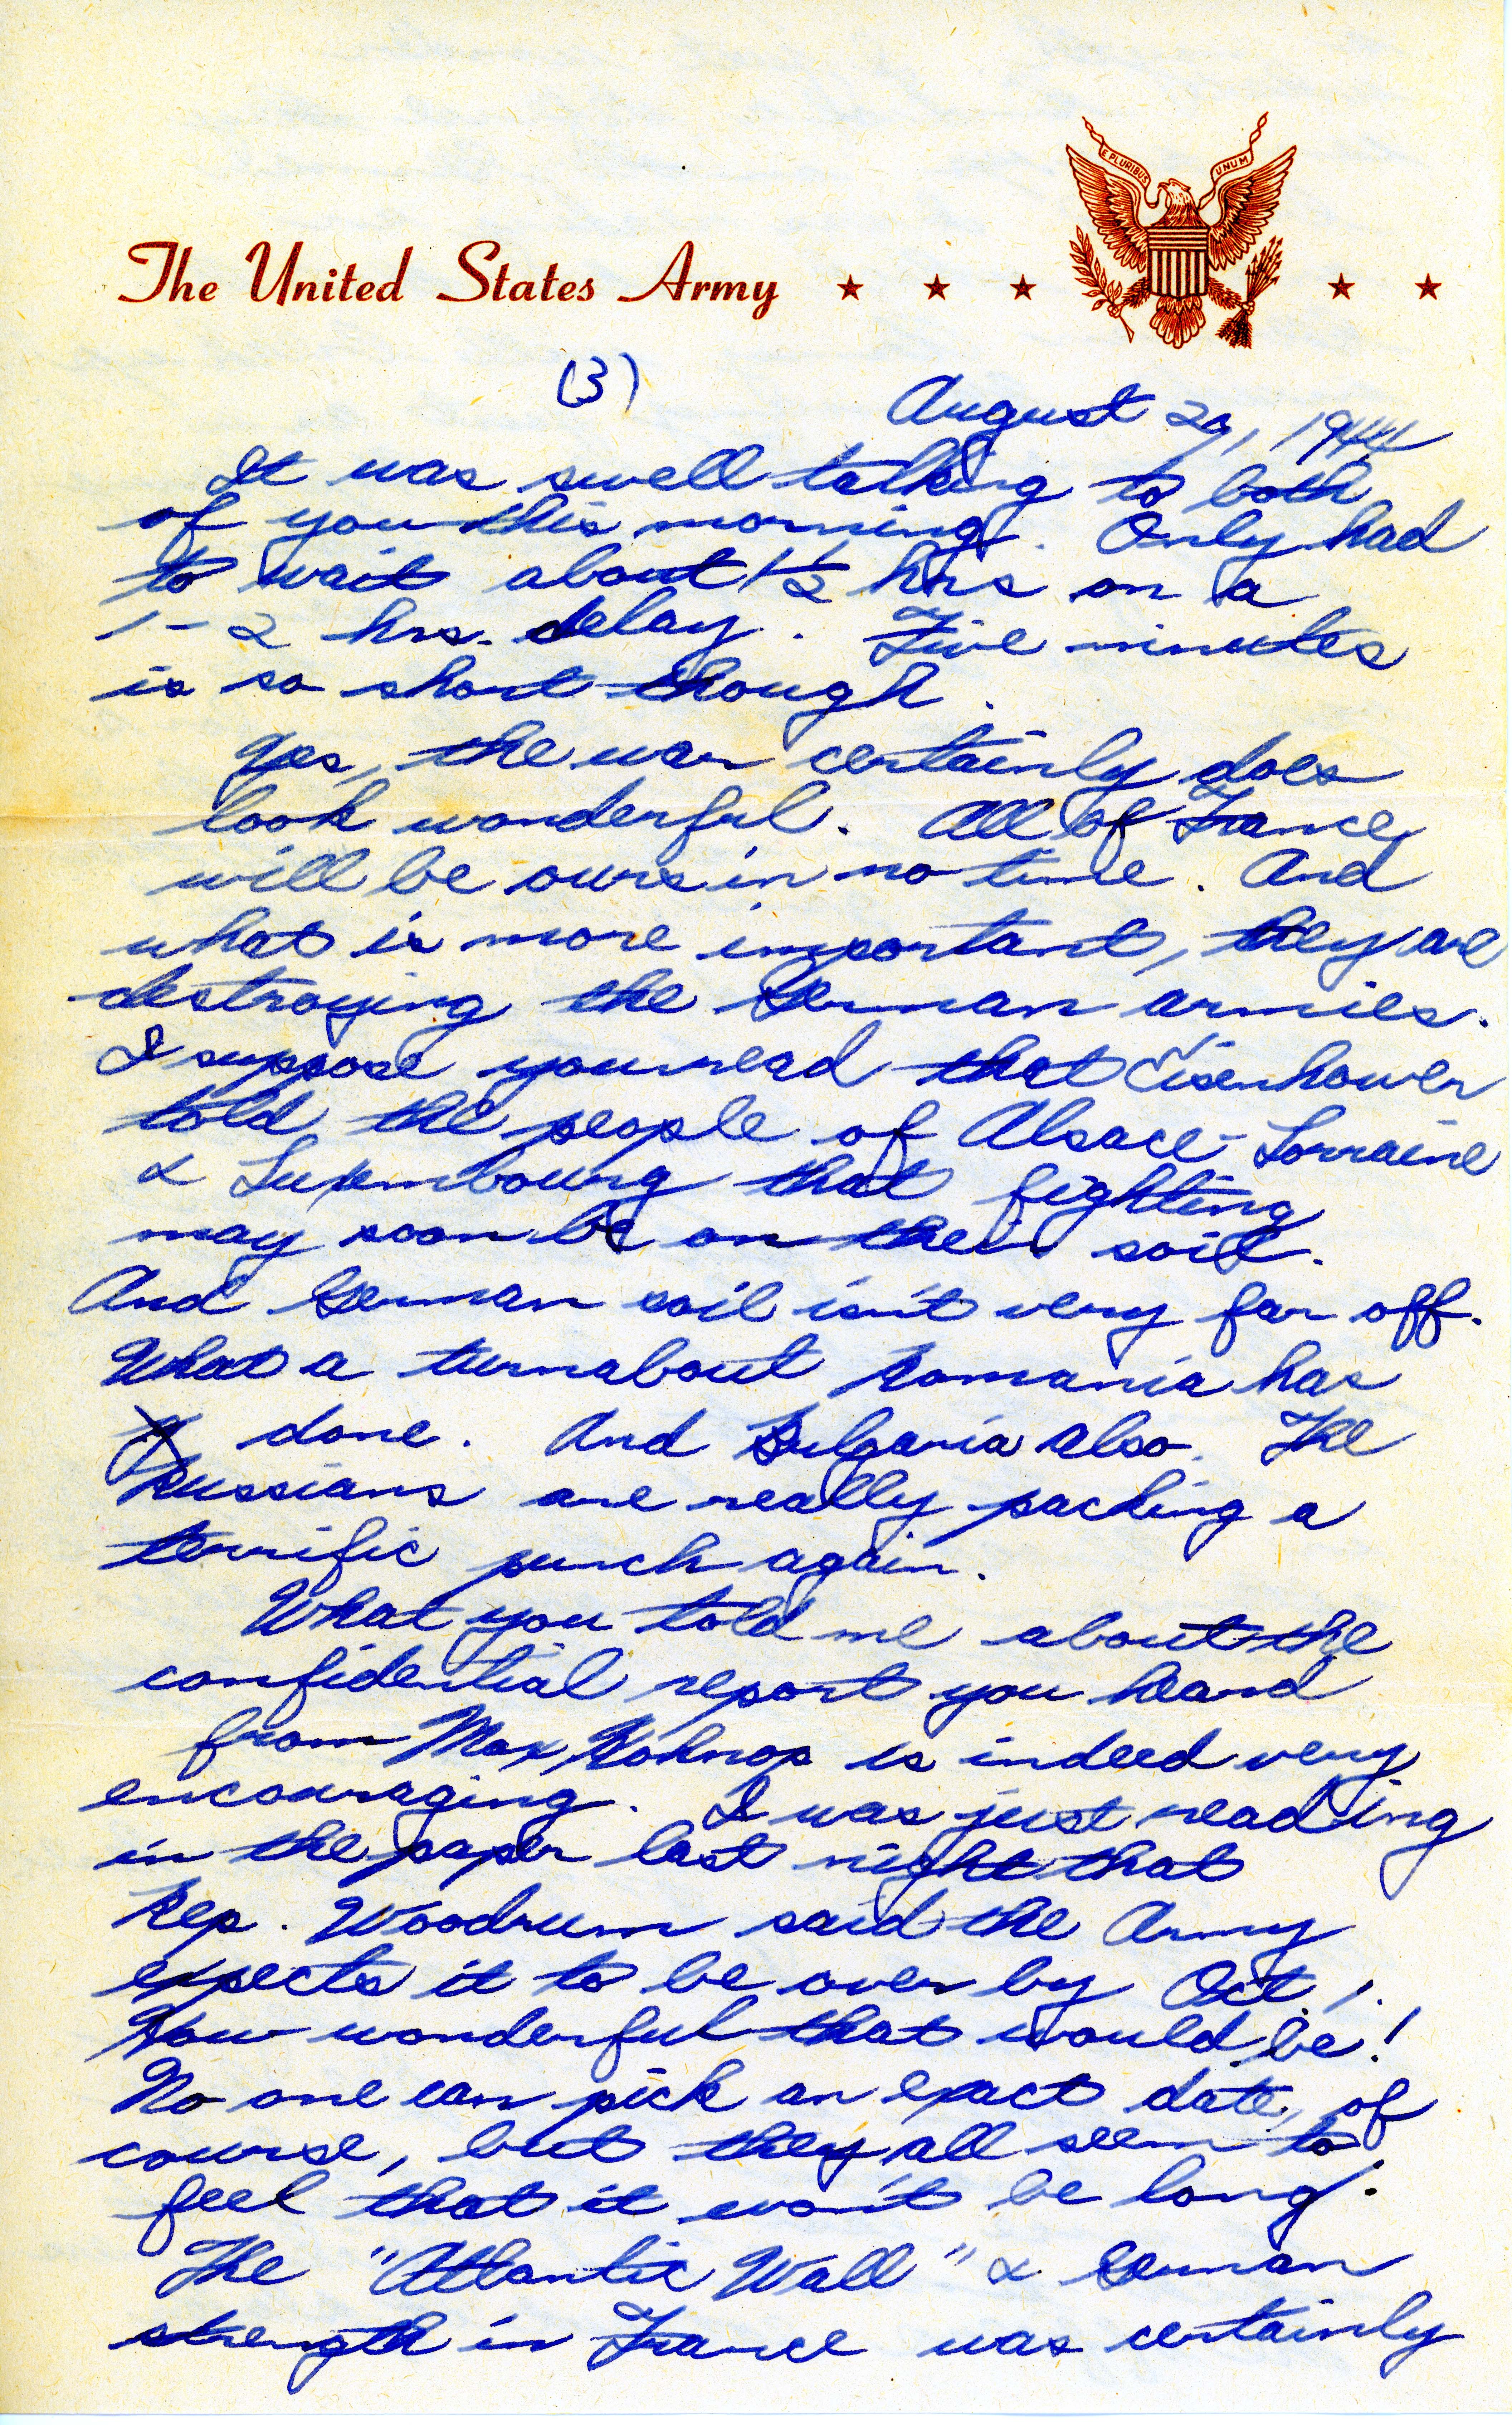 E PLURIBUS UNUM
The United States Army
(3)
August 29, 1944
It was swell talking to both
of you this morning. Only had
to wait about 1½ hrs on a
1-2 hrs. delay. Five minutes
is so short though.
Yes, the war certainly does
look wonderful. All of France
will be ours in no time. And
what is more important, they are
destroying the German armies.
I suppose you read that Eisenhower
told the people of Alsace-Lorraine
& Luxembourg that fighting
may soon be on their soil.
And German soil isn't very far off.
What a turnabout Romania has
done. And Bulgaria also. The
Russians are really packing a
terrific punch again.
What you told me about the
confidential report you heard
from Max is indeed very
encouraging. I was just reading
in the paper last night that
Rep. Woodrum said the Army
expects it to be over by Oct 1.
How wonderful that would be!
No one can pick an exact date, of
course, but they all seem to
feel that it won't be long.
The "Atlantic Wall" & German
strength in France was certainly